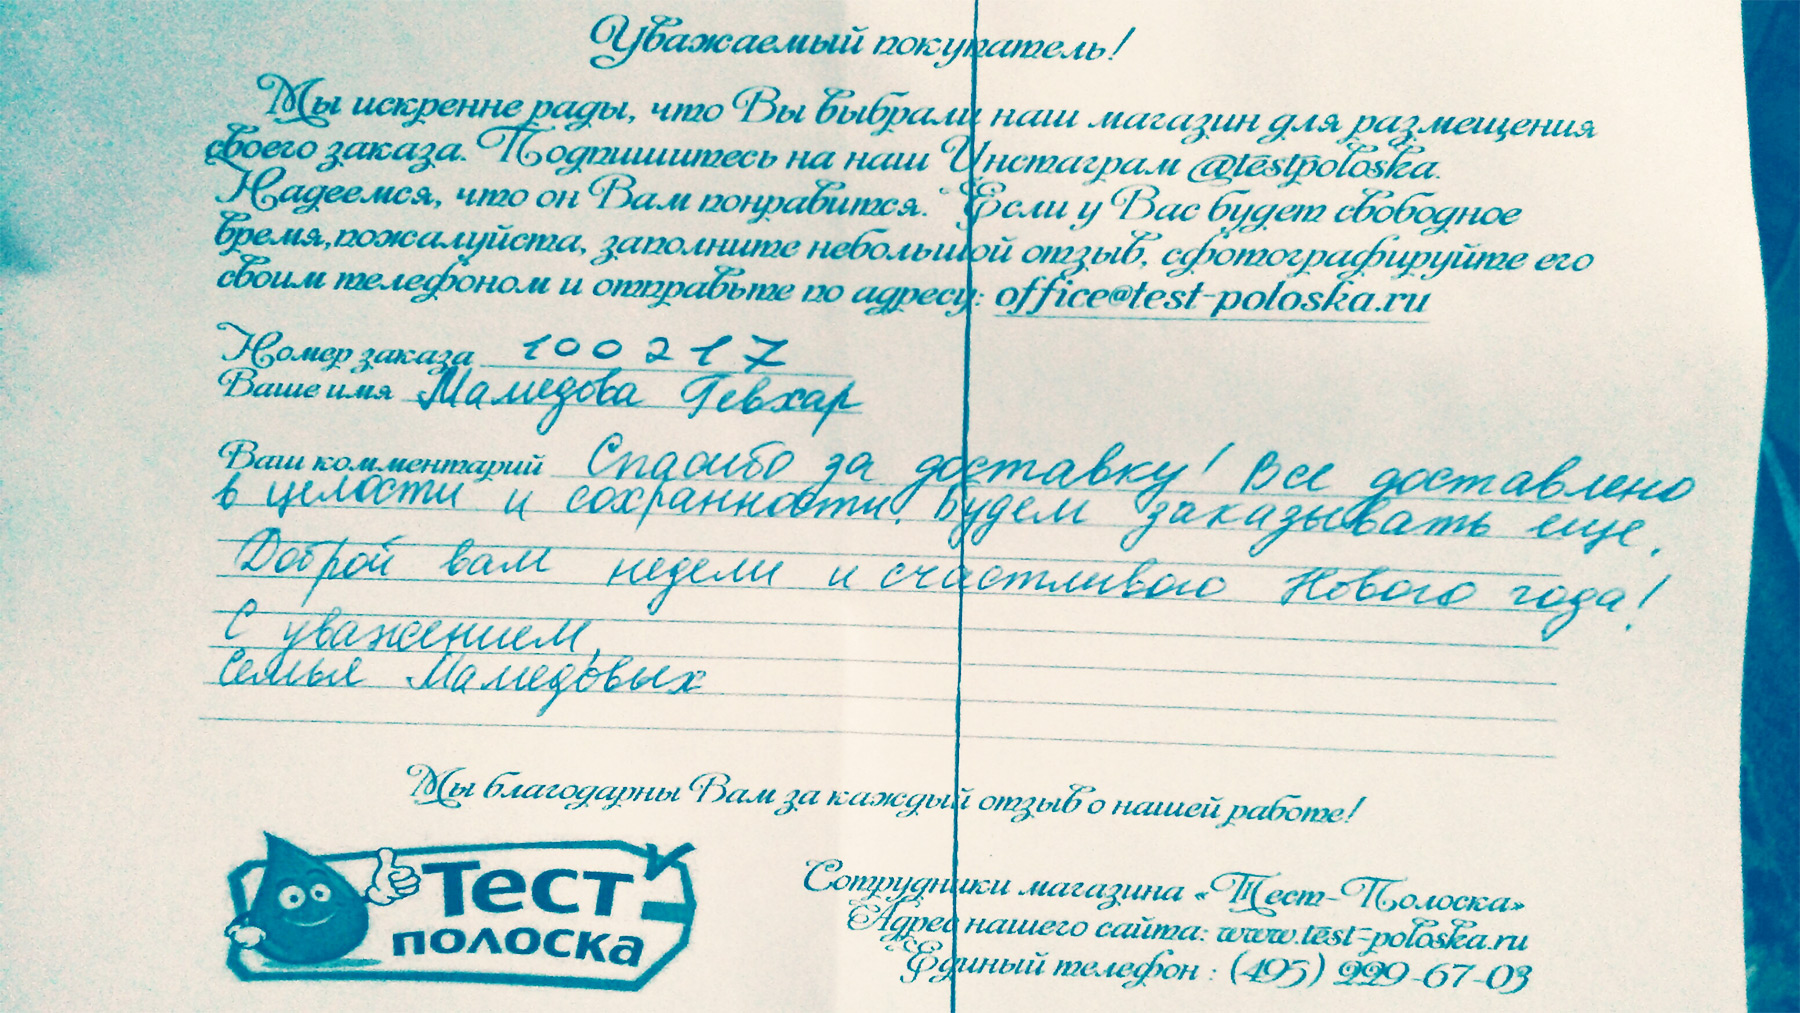 Уважаемый покупатель!
Мы искренне рады, что Вы выбрали наш магазин для размещения
своего заказа. Подпишитесь на наш Инстаграм @testpoloska.
Надеемся, что он Вам понравится. Если у Вас будет свободное
время,пожалуйста, заполните небольшой отзыв, сфотографируйте его
своим телефоном и отправьте по адресу: office@test-poloska.ru
Номер заказа 100217
Ваше имя Мамедова Гевхар
Ваш комментарий Спасибо за доставку! Все доставлено
в целости и сохранности. Будем заказывать еще.
Доброй вам недели и счастливого Нового года!
С уважением,
Семья Мамедовых
Мы благодарны Вам за каждый отзыв о нашей работе!
Тест
полоска
Сотрудники магазина «Тест-Полоска»
Адрес нашего сайта: www.test-poloska.ru
Единый телефон : (495) 229-67-03